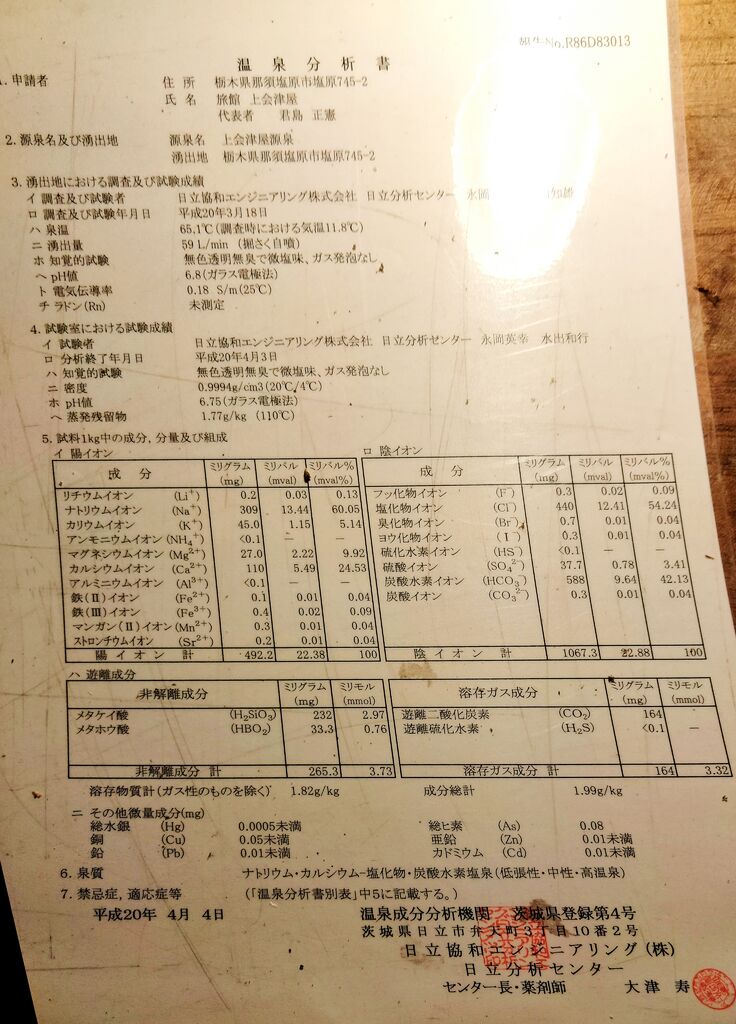 No.R86D83013
温泉分析書
1. 申請者 住所 栃木県那須塩原市塩原745-2
氏名 旅館 上会津屋
代表者 君島 正憲
2. 源泉名及び湧出地 源泉名 上会津屋源泉
湧出地 栃木県那須塩原市塩原745-2
3. 湧出地における調査及び試験成績
イ 調査及び試験者 日立協和エンジニアリング株式会社 日立分析センター 永岡
ロ 調査及び試験年月日 平成20年3月18日
ハ 泉温 65.1℃(調査時における気温11.8℃)
ニ 湧出量 59 L/min (掘さく自噴)
ホ 知覚的試験 無色透明無臭で微塩味、ガス発泡なし
ヘ pH値 6.8(ガラス電極法)
ト 電気伝導率 0.18 S/m(25℃)
チ ラドン(Rn) 未測定
4. 試験室における試験成績
イ 試験者 日立協和エンジニアリング株式会社 日立分析センター 永岡英幸 水出和行
ロ 分析終了年月日 平成20年4月3日
ハ 知覚的試験 無色透明無臭で微塩味、ガス発泡なし
ニ 密度 0.9994g/cm3(20℃/4℃)
ホ pH値 6.75(ガラス電極法)
ヘ 蒸発残留物 1.77g/kg (110℃)
5. 試料1kg中の成分, 分量及び組成
イ 陽イオン
成分 ミリグラム(mg) ミリバル(mval) ミリバル%(mval%)
リチウムイオン (Li⁺) 0.2 0.03 0.13
ナトリウムイオン (Na⁺) 309 13.44 60.05
カリウムイオン (K⁺) 45.0 1.15 5.14
アンモニウムイオン (NH₄⁺) <0.1 — —
マグネシウムイオン (Mg²⁺) 27.0 2.22 9.92
カルシウムイオン (Ca²⁺) 110 5.49 24.53
アルミニウムイオン (Al³⁺) <0.1 — —
鉄(Ⅱ)イオン (Fe²⁺) 0.1 0.01 0.04
鉄(Ⅲ)イオン (Fe³⁺) 0.4 0.02 0.09
マンガン(Ⅱ)イオン (Mn²⁺) 0.3 0.01 0.04
ストロンチウムイオン (Sr²⁺) 0.2 0.01 0.04
陽イオン計 492.2 22.38 100
ロ 陰イオン
成分 ミリグラム(mg) ミリバル(mval) ミリバル%(mval%)
フッ化物イオン (F⁻) 0.3 0.02 0.09
塩化物イオン (Cl⁻) 440 12.41 54.24
臭化物イオン (Br⁻) 0.7 0.01 0.04
ヨウ化物イオン (I⁻) 0.3 0.01 0.04
硫化水素イオン (HS⁻) <0.1 — —
硫酸イオン (SO₄²⁻) 37.7 0.78 3.41
炭酸水素イオン (HCO₃⁻) 588 9.64 42.13
炭酸イオン (CO₃²⁻) 0.3 0.01 0.04
陰イオン計 1067.3 22.88 100
ハ 遊離成分
非解離成分 ミリグラム(mg) ミリモル(mmol)
メタケイ酸 (H₂SiO₃) 232 2.97
メタホウ酸 (HBO₂) 33.3 0.76
非解離成分 計 265.3 3.73
溶存ガス成分 ミリグラム(mg) ミリモル(mmol)
遊離二酸化炭素 (CO₂) 164
遊離硫化水素 (H₂S) <0.1 —
溶存ガス成分 計 164 3.32
溶存物質計(ガス性のものを除く) 1.82g/kg 成分総計 1.99g/kg
ニ その他微量成分(mg)
総水銀 (Hg) 0.0005未満 総ヒ素 (As) 0.08
銅 (Cu) 0.05未満 亜鉛 (Zn) 0.01未満
鉛 (Pb) 0.01未満 カドミウム (Cd) 0.01未満
6. 泉質 ナトリウム・カルシウム-塩化物・炭酸水素塩泉(低張性・中性・高温泉)
7. 禁忌症, 適応症等 (「温泉分析書別表」中5に記載する。)
平成20年 4月 4日 温泉成分分析機関 茨城県登録第4号
茨城県日立市弁天町3丁目10番2号
日立協和エンジニアリング(株)
日立分析センター
センター長・薬剤師 大津 寿